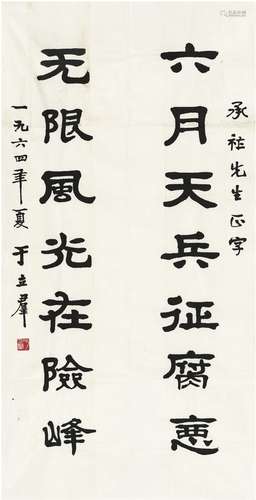 承祚先生正字
六月天兵征腐恶
无限風光在險峰
一九六四年夏 于立群